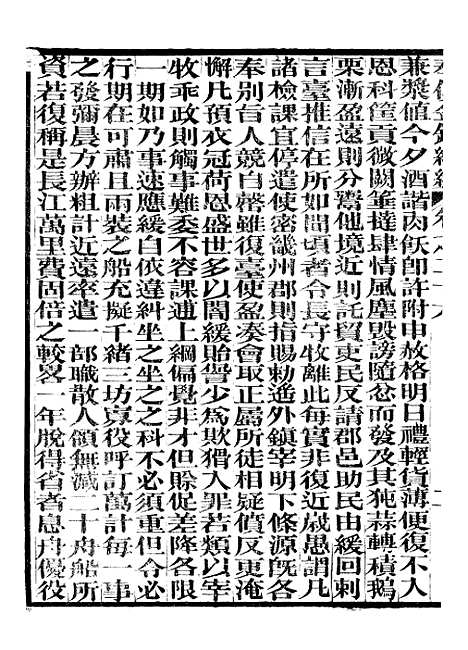 兼漿値今夕酒諧肉飫即許附申赦格明日禮輕貨薄便復不入
恩科筐貢微闕箠撻肆情風塵毁謗隨忿而發及其㹠蒜轉積鵝
栗漸盈遠則分鬻他境近則託貿吏民反請郡邑助民由緩回刺
言臺推信在所如聞頃者令長守牧離此每實非復近歳愚謂凡
諸檢課宜停遣使密畿州郡則指賜勅遙外鎮宰明下條源旣各
奉别㫖人競自罄雖復臺使盈湊會取正屬所徒相疑僨反更淹
懈凡預衣冠荷恩盛世多以闇緩貽諐少爲欺猾入罪若類以宰
牧乖政則觸事難委不容課逋上綱偏覺非才但賖促差降各限
一期如乃事速應緩自依違糾坐之坐之之科不必須重但令必
行期在可肅且兩裝之船充擬千緒三坊寡役呼訂萬計每一事
之發彌晨方辦粗計近遠率遣一部職散人領無減二十舟船所
資若復稱是長江萬里費固倍之較畧一年脫得省者息舟優役